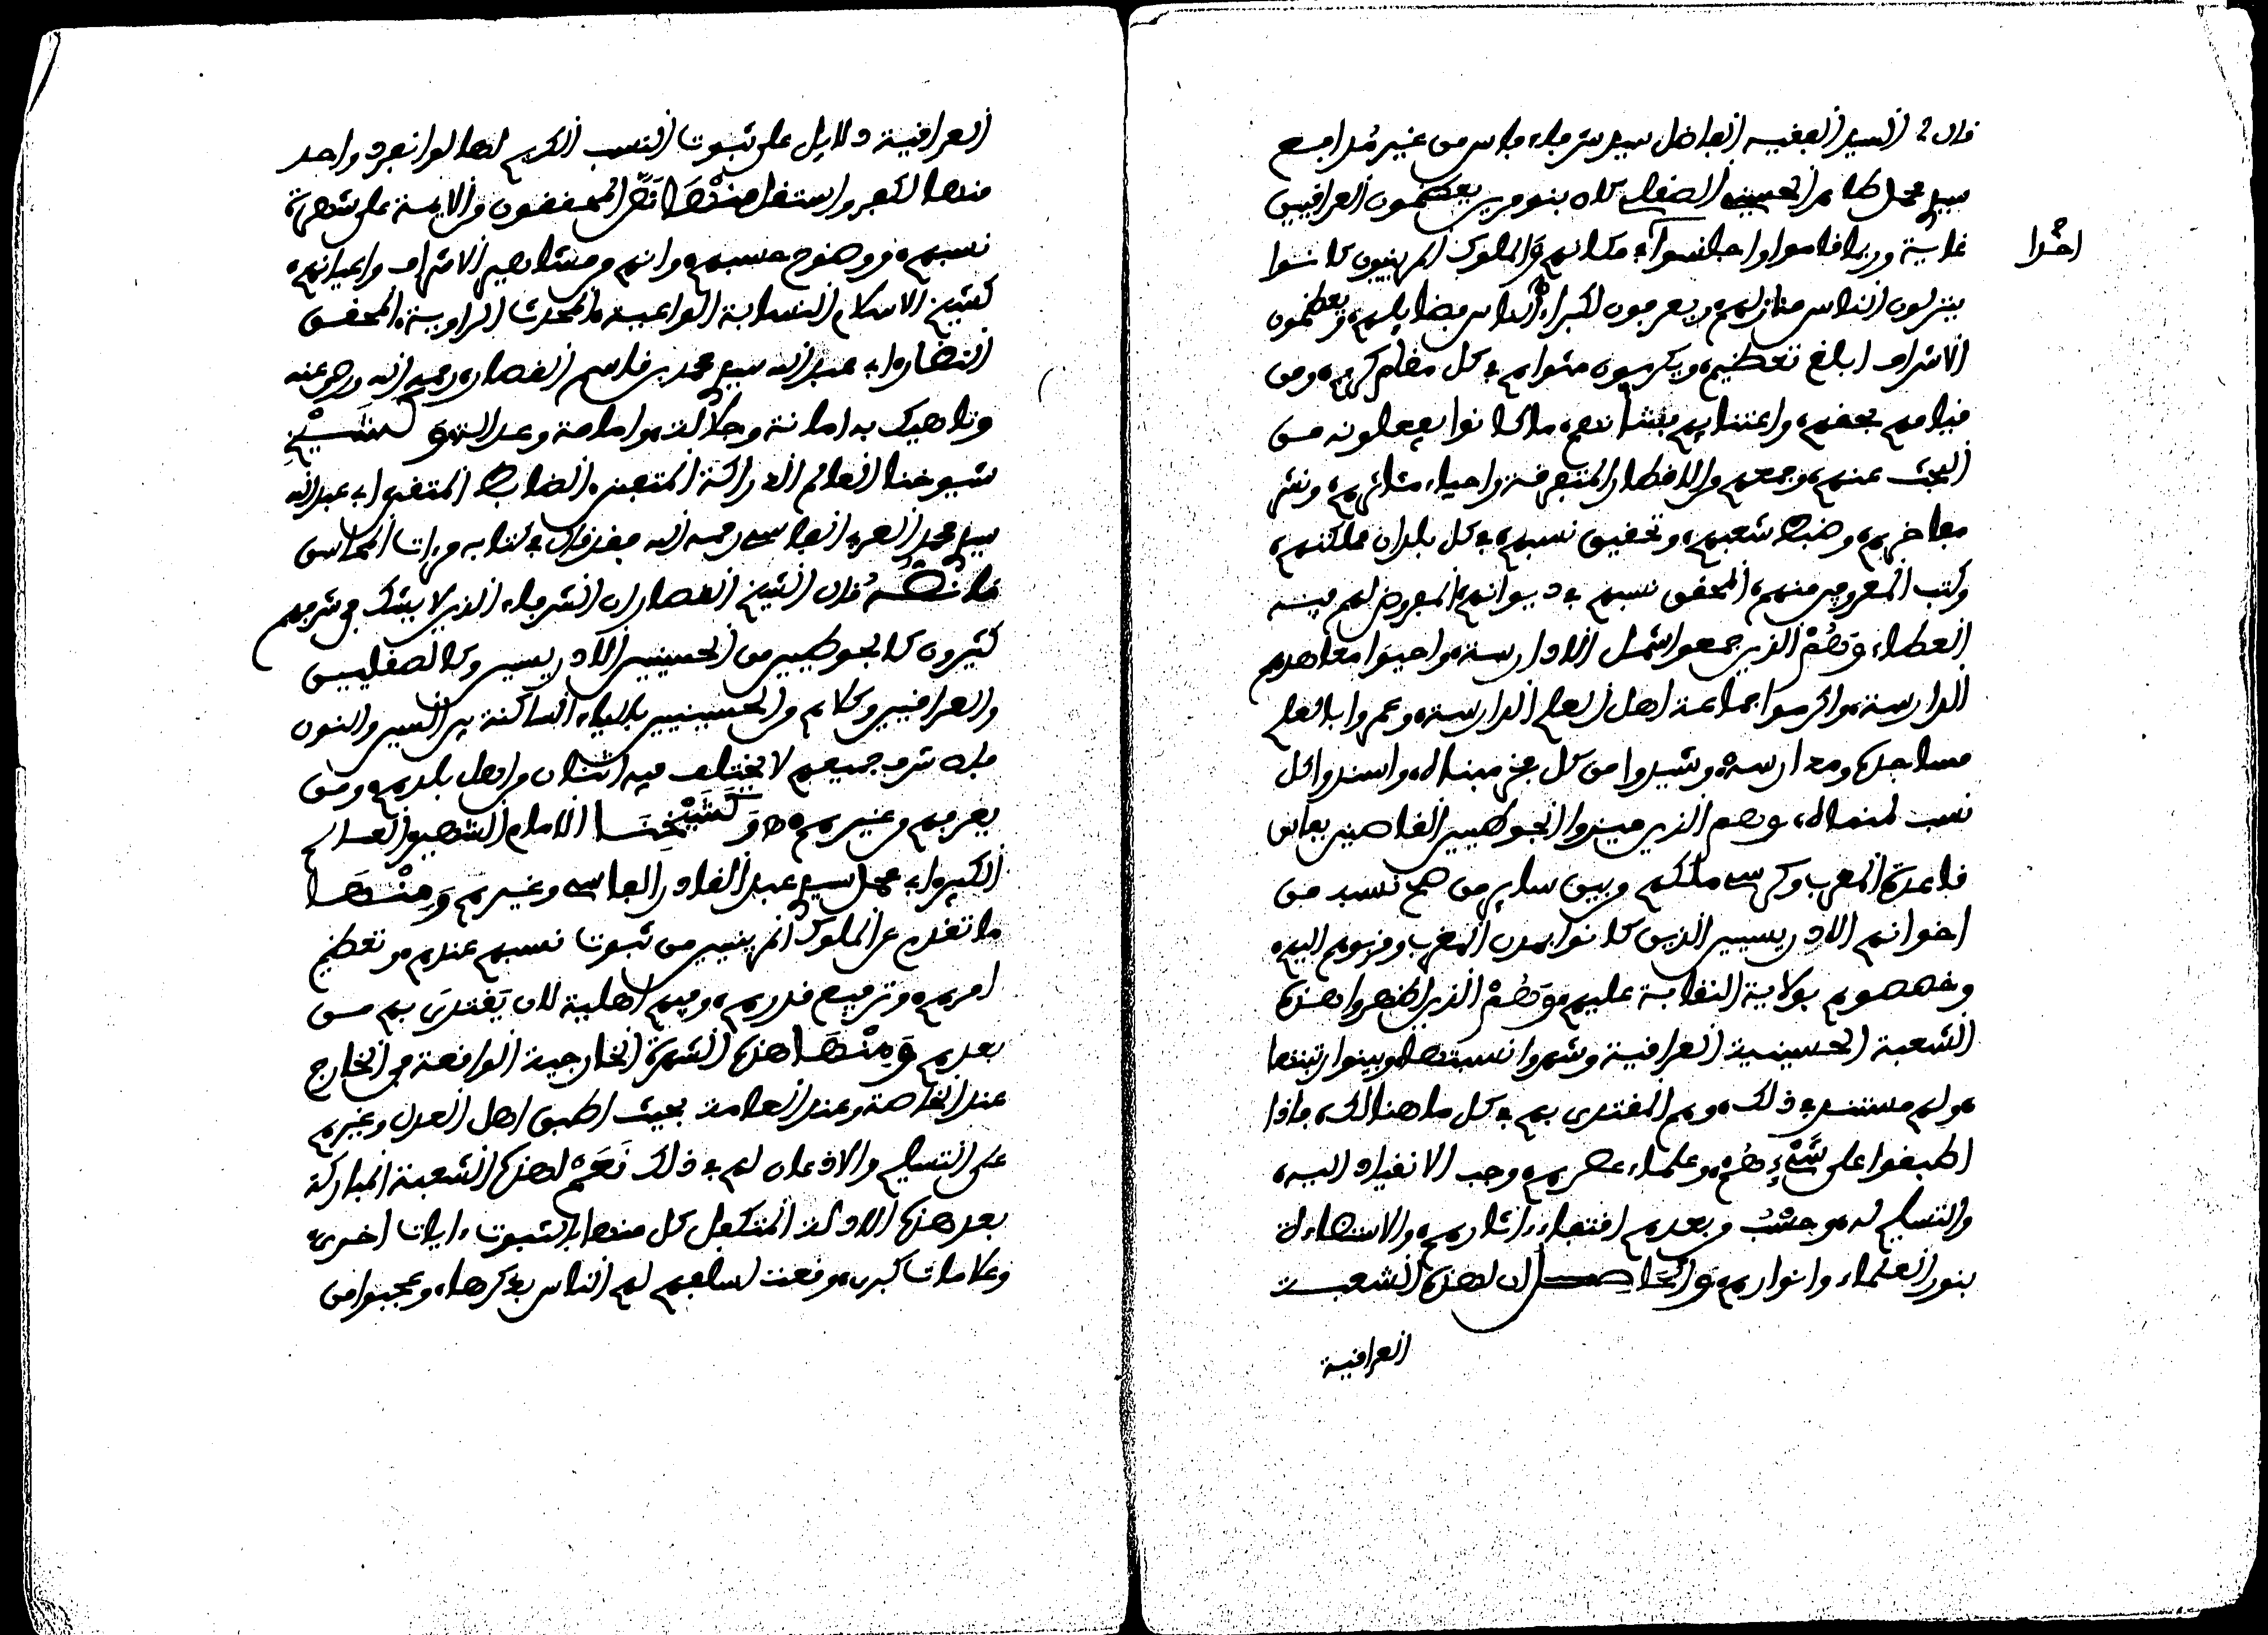 قال لي السيد الفقيه الفاضل سيد شرفاء فاس من غير مدافع
سيدي محمد الطاهر الحسيني الصقلي كان بنو مرين يعظمون العراقيين
غاية وربما قاموا واجلسوا في مكانهم والملوك المرينيون كانوا
احدا
ينزلون الناس منازلهم ويعرفون لكبراء الناس فضايلهم ويعظمون
الاشراف ابلغ تعظيم ويكرمون مثواهم في كل مقام كريم ومن
قيامهم بحقهم واعتنايهم بشانهم ما كانوا يفعلونه من
البحث عنهم وجمعهم من الاقطار المتفرقة واحياء مئاثرهم ونشر
مفاخرهم وضبط شعبهم وتحقيق نسبهم في كل بلدان مملكتهم
وكتب المعروفين منهم المحقق نسبهم في ديوانهم المفروض لهم فيه
العطاء وهم الذين جمعوا شمل الادارسة واحيوا معاهدهم
الدارسة واكرموا جماعة اهل العلم الدارسة وعمروا بالعلم
مساجده ومدارسه وشيدوا من كل فخر مبناه واسندوا كل
نسب لمنماه وهم الذين ميزوا الجوطيين القاطنين بفاس
قاعدة المغرب وكرسي ملكهم وبين ساير من صح نسبه من
اخوانهم الادريسيين الذين كانوا بمدن المغرب وقربوهم اليهم
وخصصوهم بولاية النقابة عليهم وهم الذين اظهروا هذه
الشعبة الحسينية العراقية وشهروا نسبتها وبينوا رتبتها
ولهم مستند في ذلك وهم المقتدى بهم في كل ما هنالك فاذا
اطبقوا على شيء هم وعلماء عصرهم وجب الانقياد اليه
والتسليم له وحسب من بعدهم اقتفاء اثارهم والاستضاءة
بنور العلماء وانوارهم والحاصل ان لهذه الشعبة
العراقية
العراقية دلايل على ثبوت النسب الكريم لها لو انفرد واحد
منها لكفى واستقل منها نص المحققين من الايمة على شهرة
نسبهم ووضوح حسبهم وانهم من مشاهير الاشراف واعيانهم
كشيخ الاسلام النسابة الواعية المحدث الراوية المحقق
النظار ابي عبد الله سيدي محمد بن قاسم القصار رحمه الله ورضي عنه
وناهيك به امانة وجلالة وامامة وعدالة وكشيخ
شيوخنا العالم الدراكة المتفنن الضابط المتقن ابي عبد الله
سيدي محمد العربي الفاسي رحمه الله فقد قال في كتابه مرءات المحاسن
ما نصه قال الشيخ القصار ان الشرفاء الذين لا يشك في شرفهم
كثيرون كالجوطيين من الحسنيين الادريسيين وكالصقليين
والعراقيين وكلاهم من الحسينيين بالياء الساكنة بين السين والنون
فان شرف جميعهم لا يختلف فيه اثنان من اهل بلدهم ومن
يعرفهم وغيرهم ه وكشيخنا الامام الشهير العالم
الكبير ابي محمد سيدي عبد القادر الفاسي وغيرهم ومنها
ما تقدم عن الملوك المرينيين من ثبوت نسبهم عندهم وتعظيم
امرهم وترفيع قدرهم وفيهم اهلية لان يقتدى بهم من
بعدهم ومنها هذه الشهرة الخارجية الواقعة في الخارج
عند الخاصة وعند العامة بحيث اطبق اهل العدل وغيرهم
على التسليم والاذعان لهم في ذلك نعم لهذه الشعبة المباركة
بعد هذه الادلة المتكفل كل منها بالثبوت ايات اخرى
وعلامات كبرى وقعت لسلفهم لهج الناس بذكرها وعجبوا من